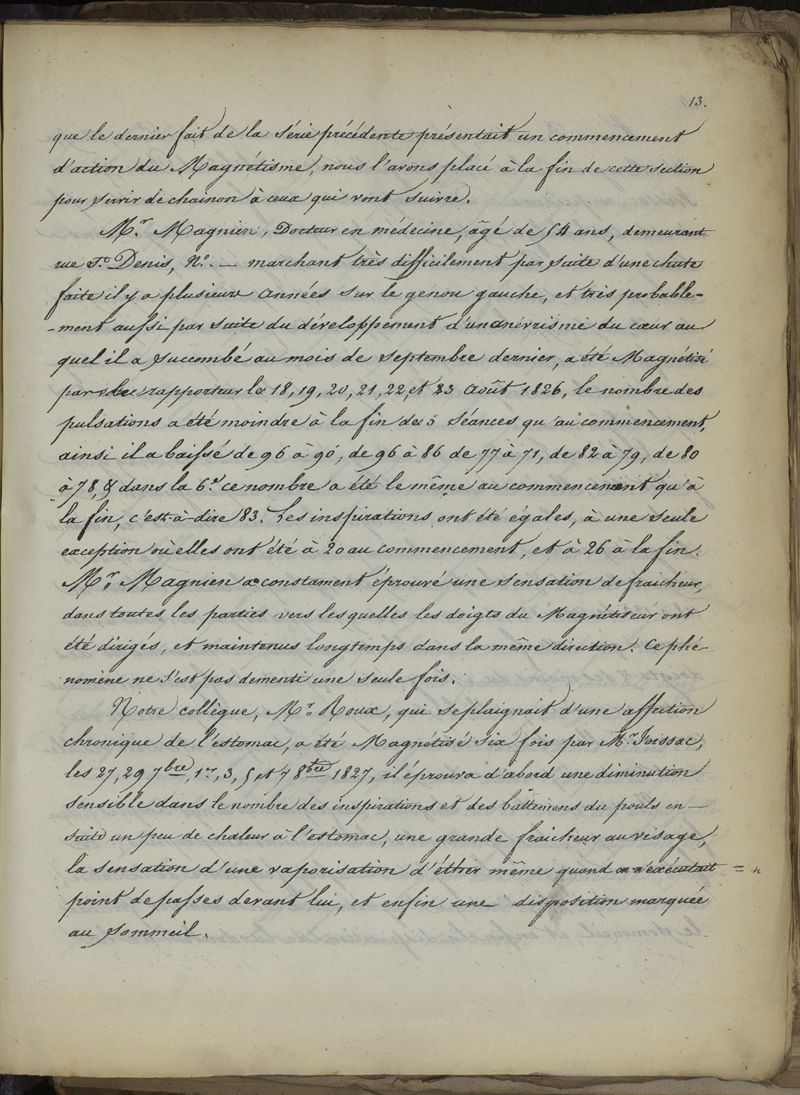 13.
que le dernier fait de la série précédente présentait un commencement
d'action du Magnétisme, nous l'avons placé à la fin de cette section
pour servir de chainon à ceux qui vont suivre.
Mr. Magnien, Docteur en médecine, âgé de 54 ans, demeurant
rue St. Denis, No. — marchant très difficilement par suite d'une chute
faite il y a plusieurs années sur le genou gauche, et très probable-
-ment aussi par suite du développement d'un anévrisme du cœur au
quel il a succombé au mois de septembre dernier, a été Magnétisé
par le rapporteur les 18, 19, 20, 21, 22 et 23 Août 1826, le nombre des
pulsations a été moindre à la fin de 5 séances qu'au commencement,
ainsi il a baissé de 96 à 90, de 96 à 86 de 77 à 71, de 82 à 79, de 80
à 78, & dans la 6e. ce nombre a été le même au commencement qu'à
la fin, c'est-à-dire 83. Les inspirations ont été égales, à une seule
exception où elles ont été à 20 au commencement, et à 26 à la fin.
Mr. Magnien a constament éprouvé une sensation de fraicheur,
dans toutes les parties vers lesquelles les doigts du Magnétiseur ont
été dirigés, et maintenus longtemps dans la même direction. Ce phé-
nomène ne s'est pas dementi une seule fois.
Notre collègue, Mr. Roux, qui se plaignait d'une affection
chronique de l'estomac, a été Magnétisé six fois par Mr. Foissac,
les 27, 29 7bre, 1er, 3, 5 et 7 8bre 1827, il éprouva d'abord une diminution
sensible dans le nombre des inspirations et des battimens du pouls en—
suite un peu de chaleur à l'estomac, une grande fraicheur au visage,
la sensation d'une vaporisation d'éther même quand on n'exécutait
point de passes devant lui, et enfin une disposition marquée
au sommeil.